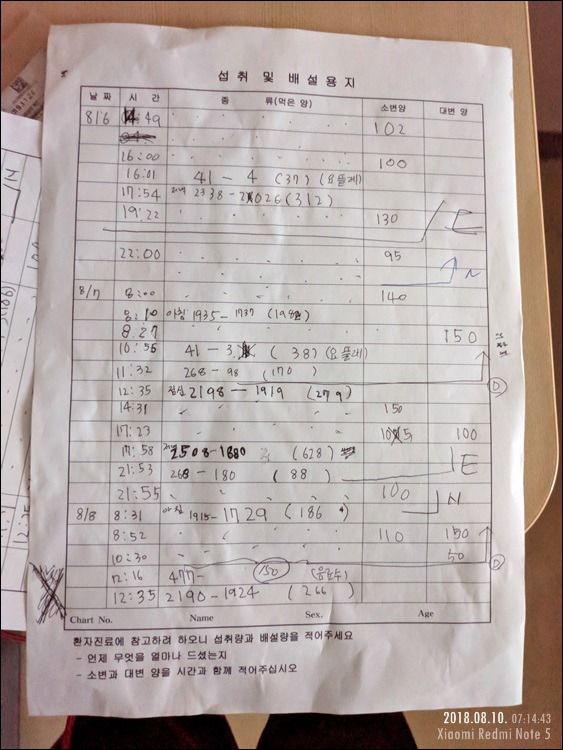 섭취 및 배설용지
날짜 시간 종 류(먹은 양) 소변양 대변 양
8/6 14:49 102
16:00 100
16:01 41 - 4 (37) (요플레)
17:54 저녁 2338 - 2026 (312)
19:22 130
E
22:00 95
N
8/7 8:00 140
8:10 아침 1935 - 1737 (198)
8:27 150
10:56 41 - 3 (38) (요플레)
11:32 268 - 98 (170)
D
12:35 점심 2198 - 1919 (279)
14:31 150
17:23 105 100
17:58 저녁 2508 - 1880 (628)
E
21:53 268 - 180 (88)
21:55 100
N
8/8 8:31 아침 1915 - 1729 (186)
8:52 110 150
10:30 50
D
12:16 477 - 150
12:35 2190 - 1924 (266)
Chart No. Name Sex. Age
환자진료에 참고하려 하오니 섭취량과 배설량을 적어주세요
- 언제 무엇을 얼마나 드셨는지
- 소변과 대변 양을 시간과 함께 적어주십시오
2018.08.10. 07:14:43
Xiaomi Redmi Note 5